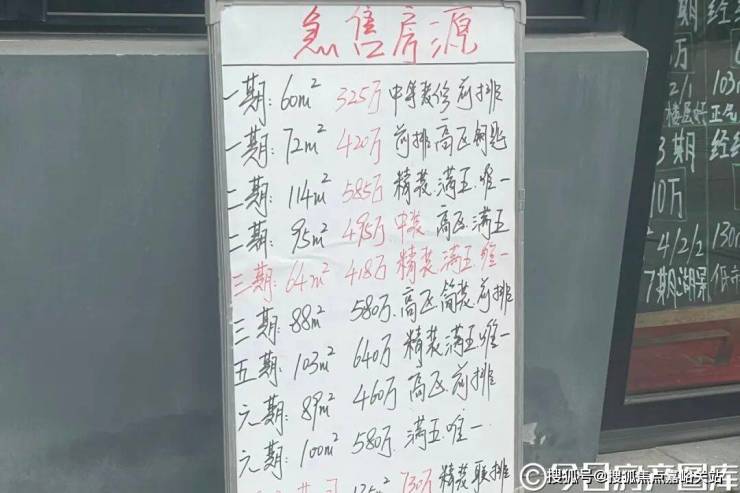 急售房源
一期: 60m² 325万 中等装修 前排
一期: 72m² 420万 前排高区钥匙
二期: 114m² 585万 精装满五唯一
二期: 95m² 495万 中装 高区满五
三期: 64m² 418万 精装满五唯一
三期: 88m² 580万 高区简装前排
五期: 103m² 640万 精装满五唯一
元期: 89m² 460万 高区前排
元期: 100m² 580万 满五唯一
730万 精装 联排
期 经
万
2/1 103
楼层好 正气
3期 经
10万
4/2/2 130
7期湖景 低
搜狐号@搜狐焦点嘉峪关站
今日房产图库